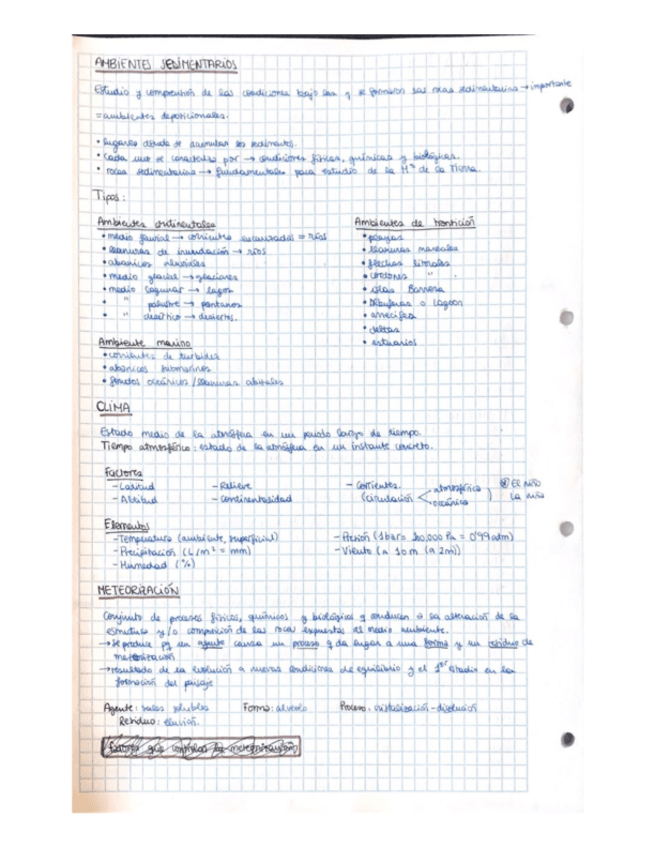 AMBIENTES SEDIMENTARIOS
Estudio y comprensión de las condiciones bajo las q se formaron las rocas sedimentarias → importante
= ambientes deposicionales.
• lugares donde se acumulan los sedimentos.
• Cada uno se caracteriza por → condiciones físicas, químicas y biológicas.
• rocas sedimentarias → fundamentales para estudio de la Hª de la Tierra.
Tipos:
Ambientes continentales
• medio fluvial → corriente encauzada = ríos
• llanuras de inundación → ríos
• abanicos aluviales
• medio glacial → glaciares
• medio lagunar → lagos
• " palustre → pantanos
• " desértico → desiertos.
Ambientes de transición
• playas
• llanuras mareales
• flechas litorales
• cordones "
• islas Barrera
• Albuferas o Lagoon
• arrecifes
• deltas
• estuarios
Ambiente marino
• corrientes de turbidez
• abanicos submarinos
• fondos oceánicos / llanuras abisales
CLIMA
Estado medio de la atmósfera en un periodo largo de tiempo.
Tiempo atmosférico: estado de la atmósfera en un instante concreto.
Factores
- Latitud - Relieve - Corrientes. atmosférica El niño
- Altitud - Continentalidad (circulación oceánica La niña
Elementos
- Temperatura (ambiente, superficial) - Presión (1bar = 100.000 Pa = 0'99 atm)
- Precipitación (L/m² = mm) - Viento (a 10m (a 2m))
- Humedad (%)
METEORIZACIÓN
Conjunto de procesos físicos, químicos y biológicos q conducen a la alteración de la
estructura y/o composición de las rocas expuestas al medio ambiente.
→ Se produce pq un agente causa un proceso q da lugar a una forma y un residuo de
meteorización
→ resultado de la evolución a nuevas condiciones de equilibrio y el 1er estadio en la
formación del paisaje
Agente: sales solubles Forma: alveolo Proceso: cristalización-disolución
Residuo: eluvión.